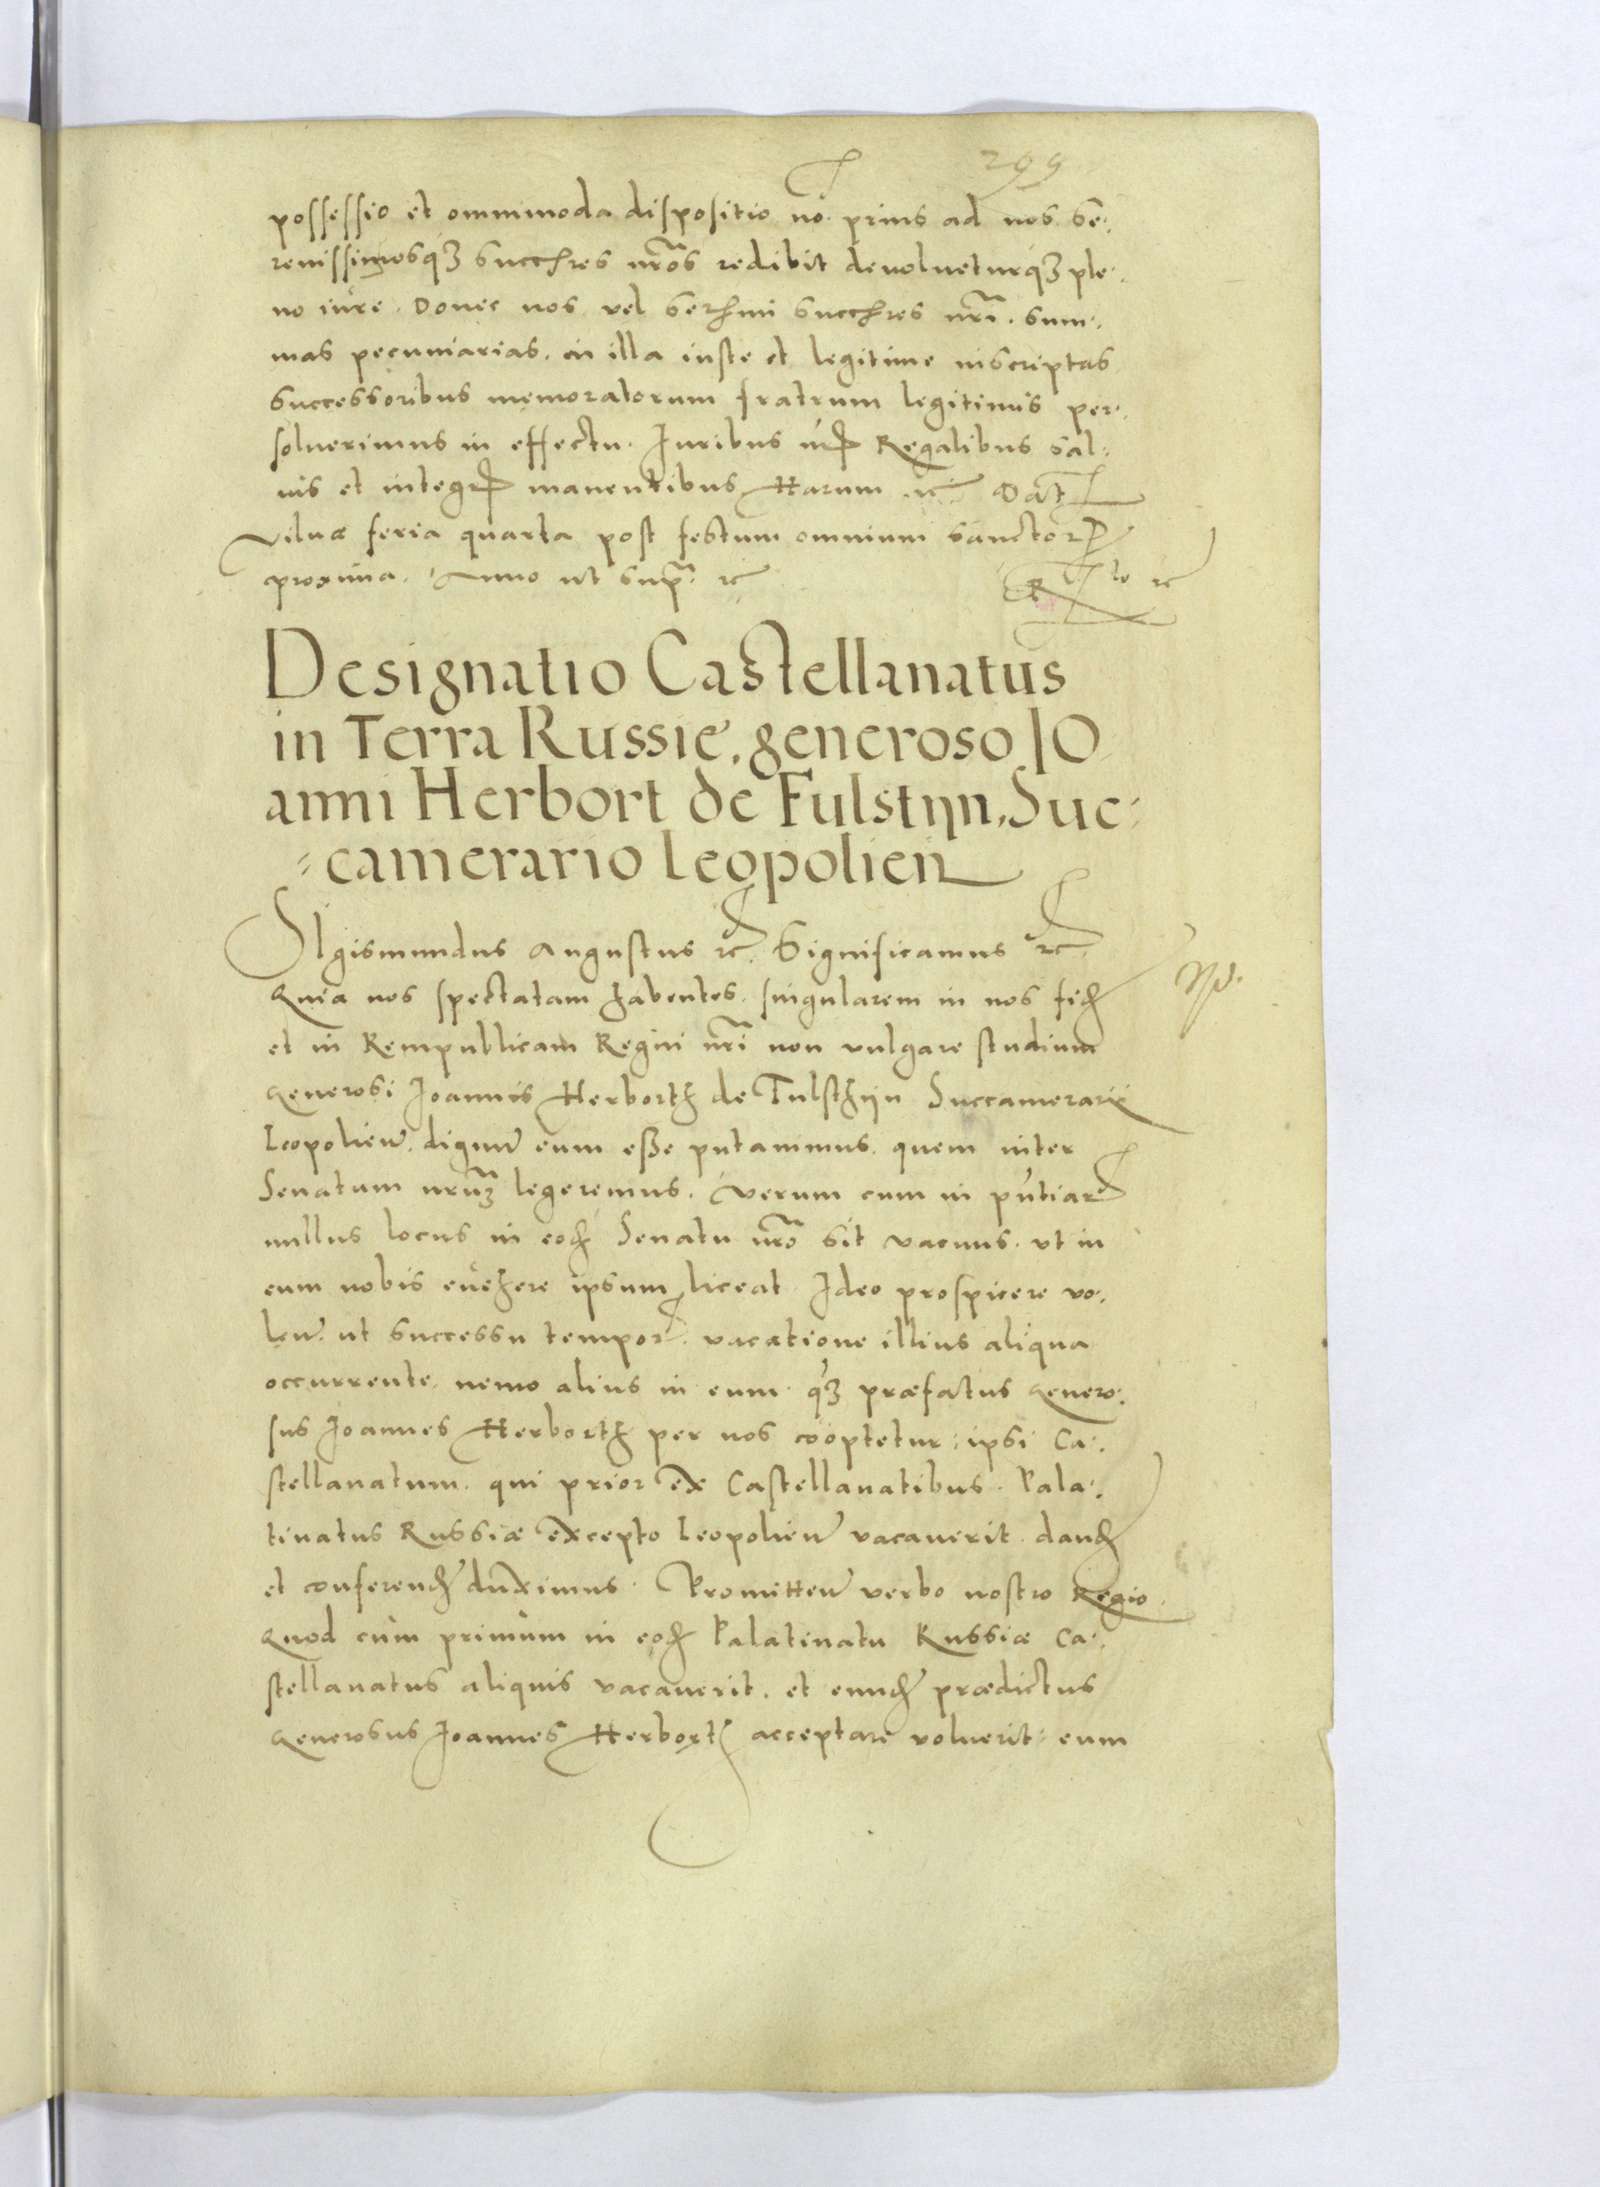 299
possessio et omnimoda dispositio no prius ad nos se-
renissimosq3 succres nros redibit devolveturq3 ple-
no iure. Donec nos vel serenmi succres nri. sum-
mas pecuniarias, in illa iuste et legitime inscriptas
successoribus memoratorum fratrum legitimis per-
solverimus in effectu. Iuribus nris Regalibus sal-
vis et integris manentibus Harum rc Dat
Vilnæ feria quarta post festum omnium sanctor
proxima. Anno ut supra rc
Designatio Castellanatus
in Terra Russie, generoso IO
anni Herbort de Fulstijn, Suc-
-camerario Leopolien
SIgismundus Augustus rc. Significamus rc
Quia nos spectatam habentes singularem in nos fid
et in Rempublicam Regni nri non vulgare studium
Generosi Joannis Herborth de Fulsthijn Succamerarii
Leopolien. dignu eum esse putamus quem inter
Senatum nrum legeremus. Verum cum in pntiar
nullus locus in eod Senatu nro sit vacuus ut in
eum nobis evehere ipsum liceat Ideo prospicere vo-
len. ut successu tempor. vacatione illius aliqua
occurrente nemo alius in eum q3 præfatus Genero-
sus Joannes Herborth per nos cooptetur: ipsi Ca-
stellanatum qui prior ex Castellanatibus Pala-
tinatus Russiæ excepto Leopolien vacaverit dand
et conferend duximus. Promitten verbo nostro Regio
Quod cum primum in eod Palatinatu Russiæ Ca-
stellanatus aliquis vacaverit, et eund prædictus
Generosus Joannes Herborth acceptare voluerit: eum